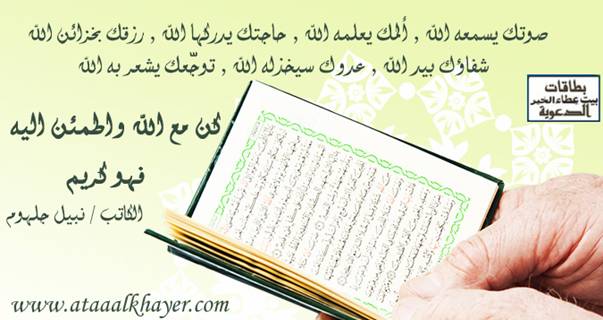 صوتك يسمعه الله , ألمك يعلمه الله , حاجتك يدركها الله , رزتك بخزائن الله
شفاؤك بيد الله , عدوك سيخذله الله , توجّعك يشعر به الله
بطاقات
بيت عطاء الخير
الدعوية
كن مع الله واطمئن اليه
فهو كريم
الكاتب / نبيل جلهوم
www.ataaalkhayer.com